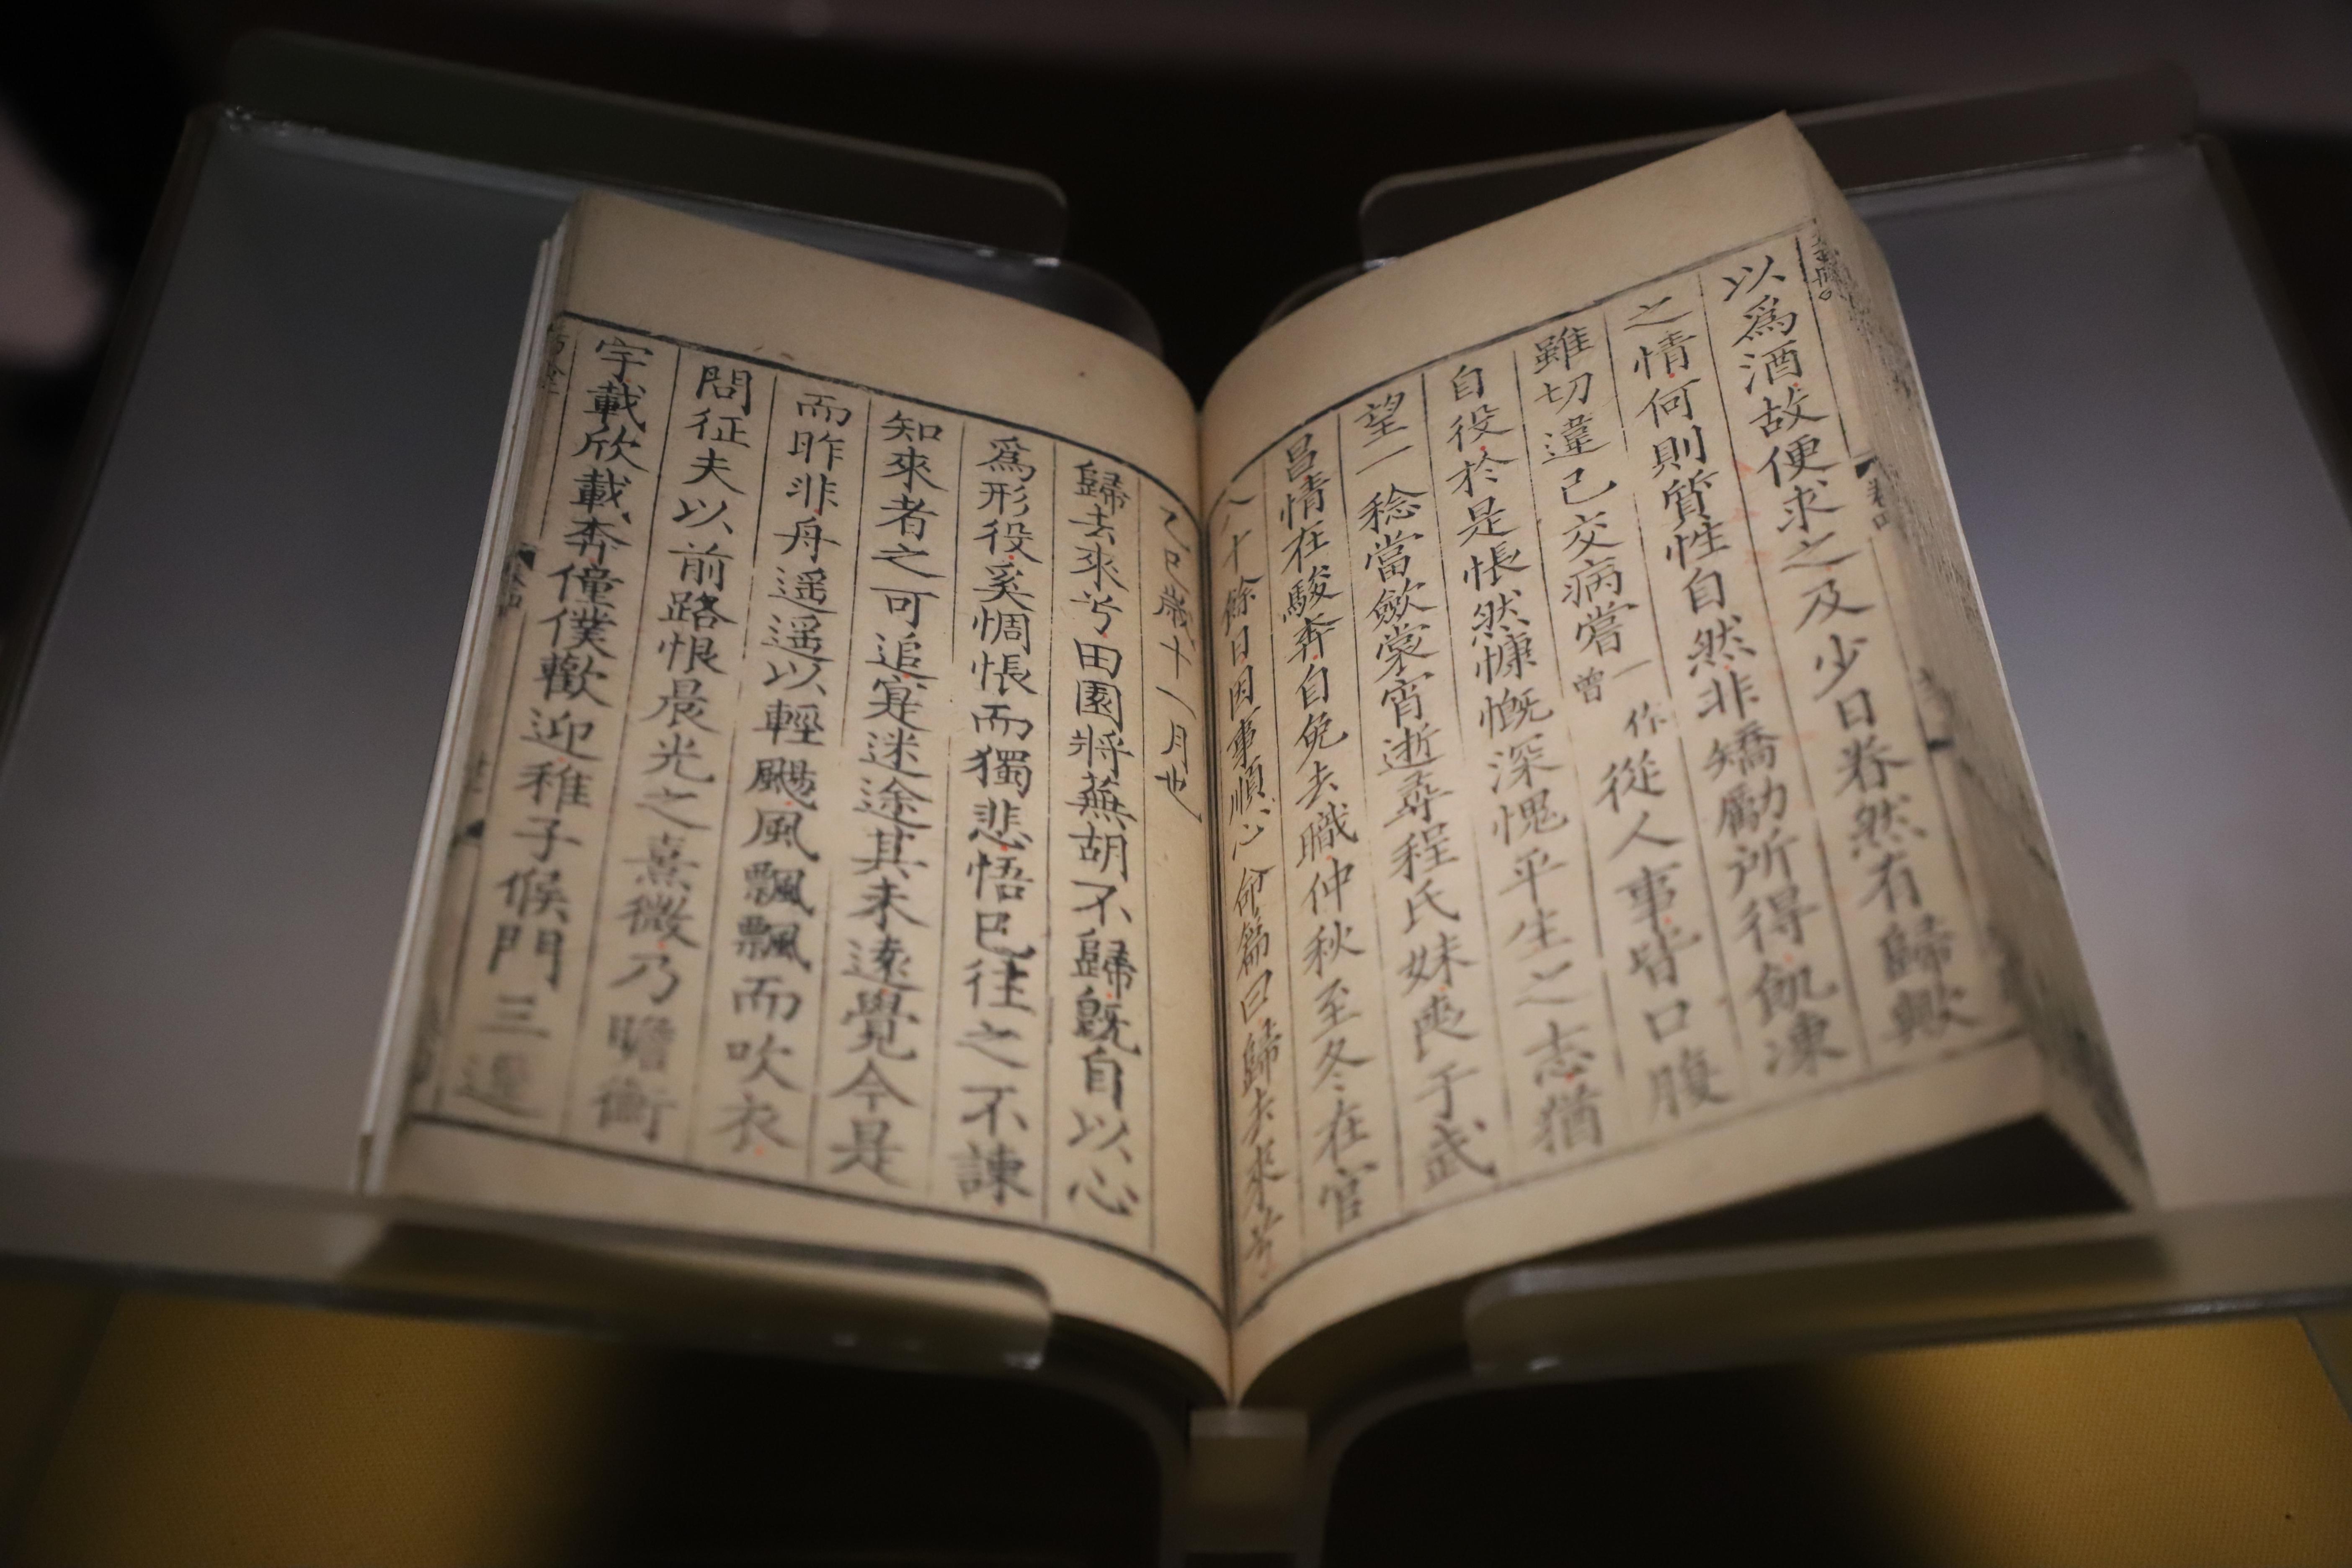 以爲酒故便求之及少日眷然有歸歟
之情何則質性自然非矯勵所得飢凍
雖切違己交病嘗一作曾從人事皆口腹
自役於是悵然慷慨深愧平生之志猶
望一稔當斂裳宵逝尋程氏妹喪于武
昌情在駿奔自免去職仲秋至冬在官
八十餘日因事順心命篇曰歸去來兮
乙巳歲十一月也
歸去來兮田園將蕪胡不歸既自以心
爲形役奚惆悵而獨悲悟已往之不諫
知來者之可追寔迷途其未遠覺今是
而昨非舟遥遥以輕颺風飄飄而吹衣
問征夫以前路恨晨光之熹微乃瞻衡
宇載欣載奔僮僕歡迎稚子候門三逕